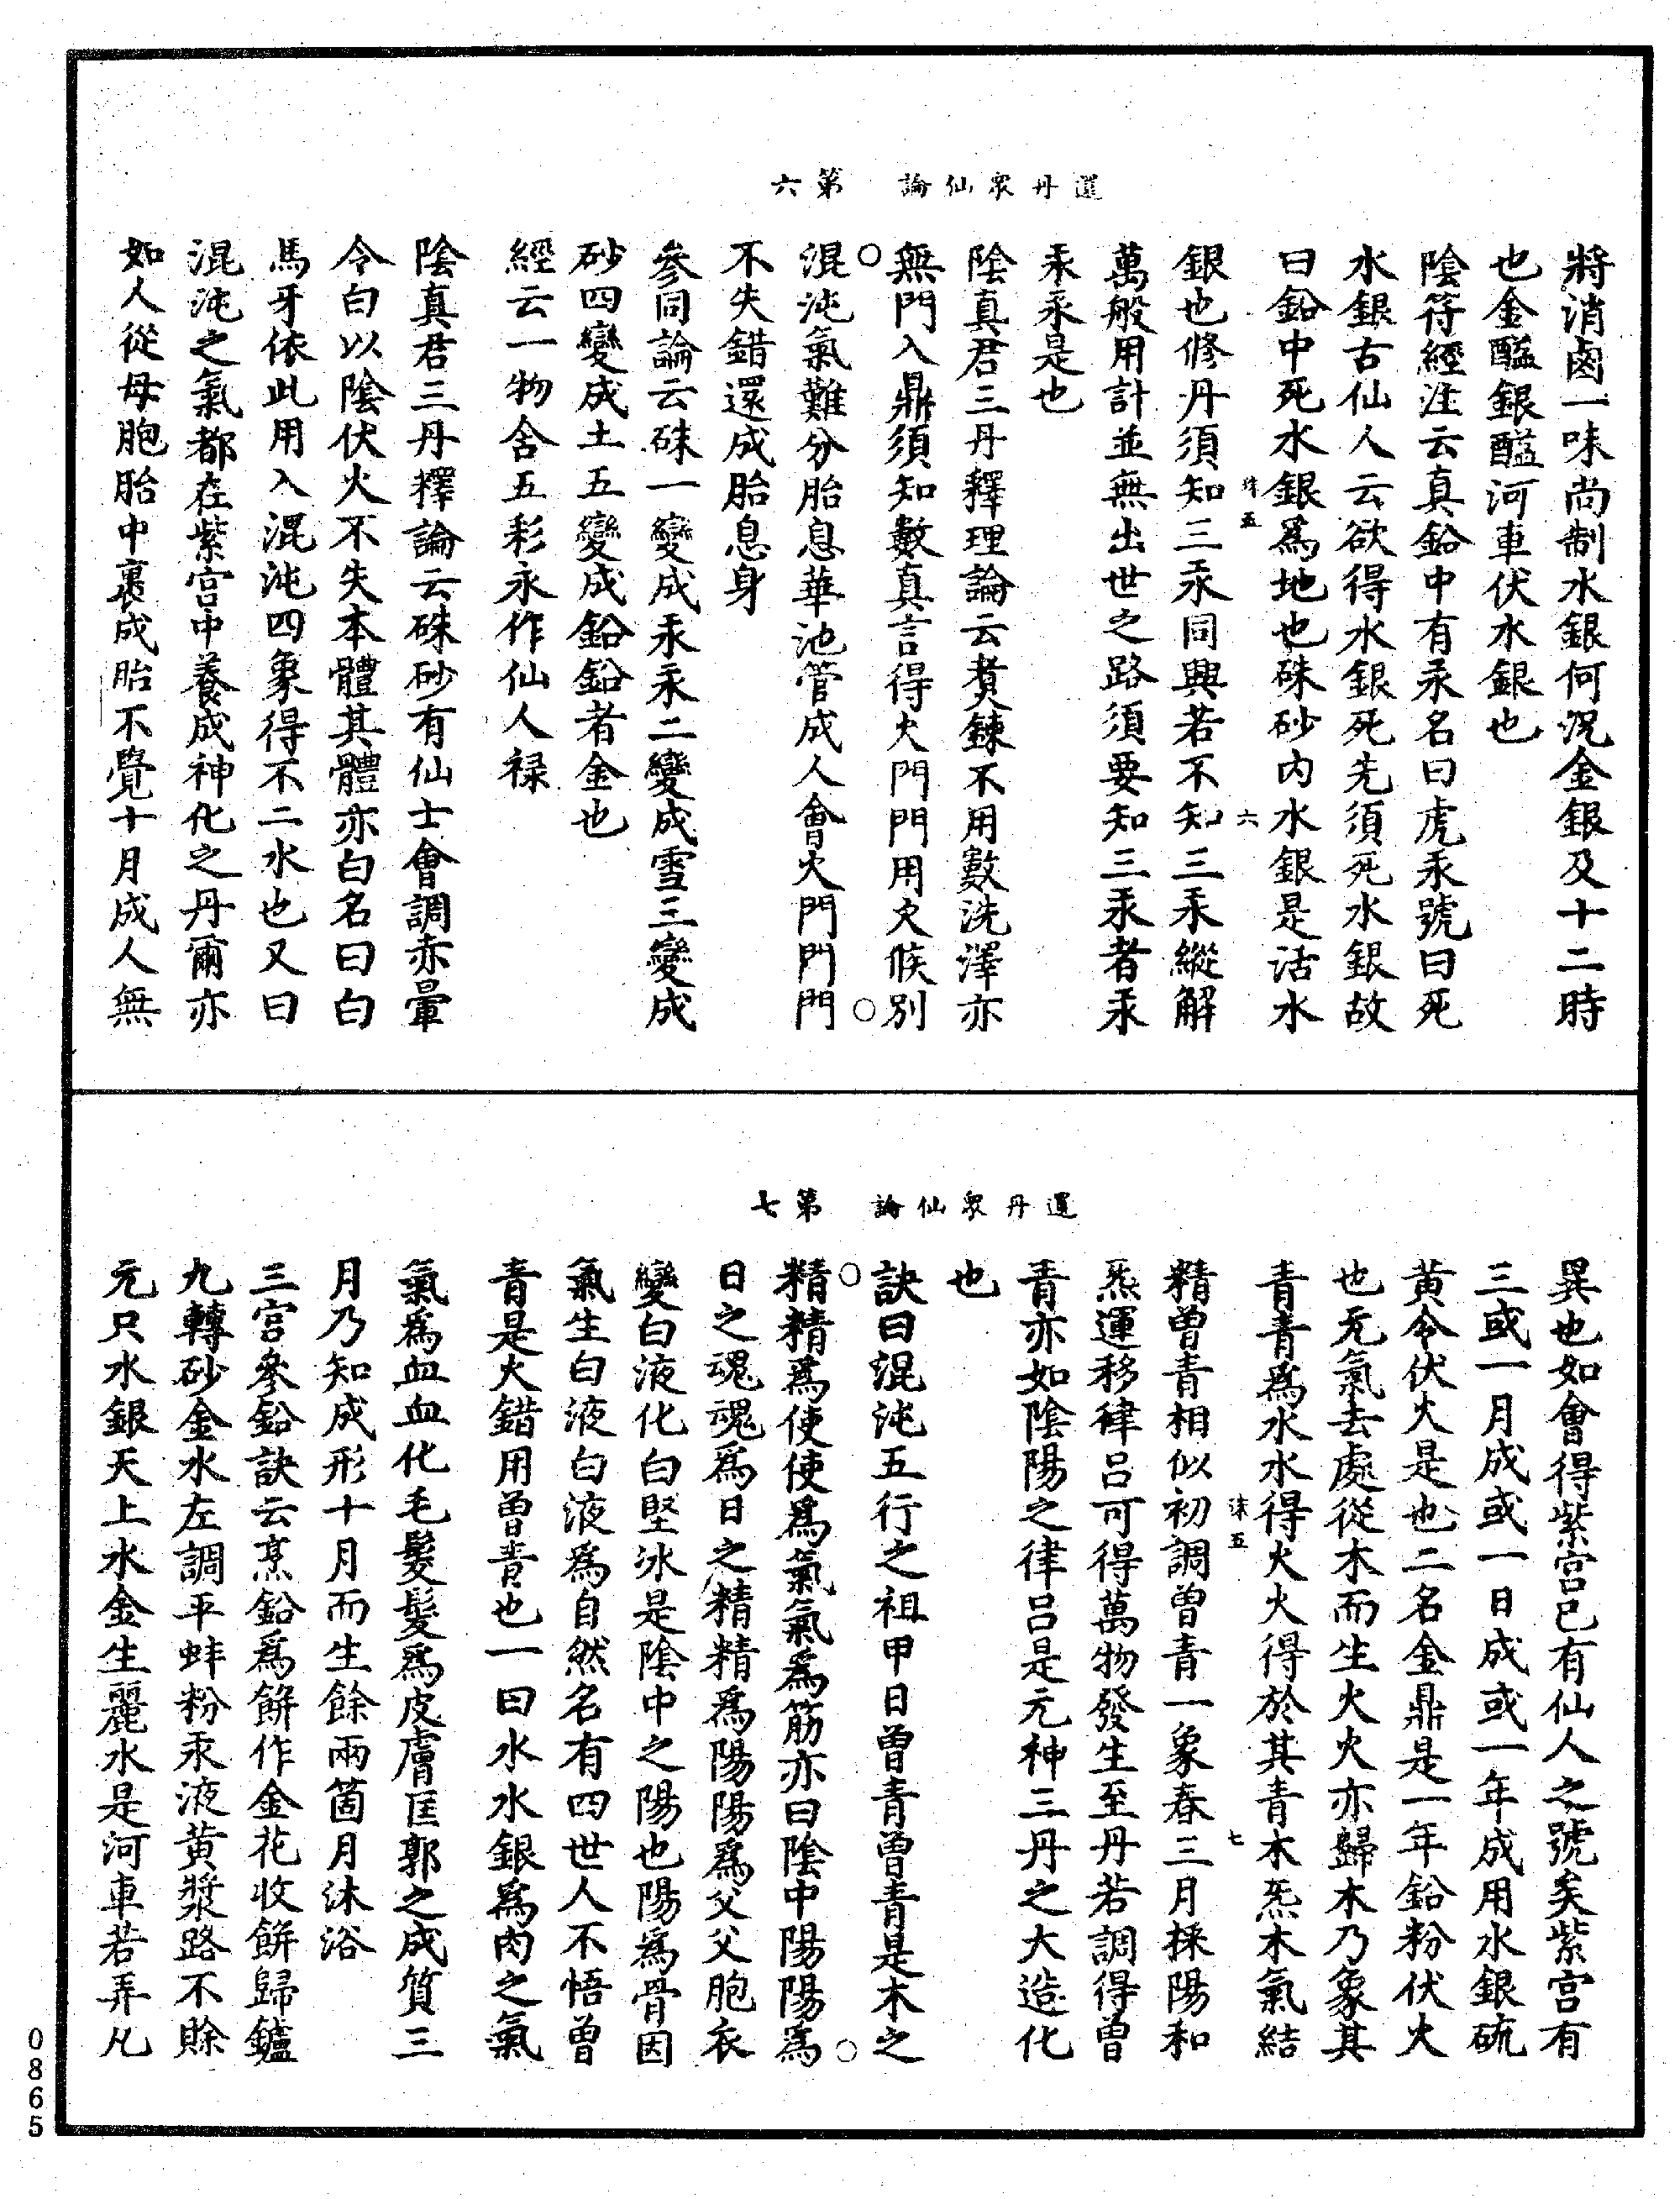 還丹眾仙論　第六
將消鹵一味尚制水銀何況金銀及十二時
也金醯銀醯河車伏水銀也
陰符經注云真鉛中有汞名曰虎汞號曰死
水銀古仙人云欲得水銀死先須死水銀故
曰鉛中死水銀爲地也硃砂内水銀是活水
銀也修丹須知三汞同興若不知三汞縱解
萬般用計並無出世之路須要知三汞者汞
汞汞是也
陰真君三丹釋理論云煑鍊不用數洗澤亦
無門入鼎須知數真言得火門門用火候別
混沌氣難分胎息華池管成人會火門門門
不失錯還成胎息身
參同論云硃一變成汞汞二變成雪三變成
砂四變成土五變成鉛鉛者金也
經云一物含五彩永作仙人祿
陰真君三丹釋論云硃砂有仙士會調赤暈
令白以陰伏火不失本體其體亦白名曰白
馬牙依此用入混沌四象得不二水也又曰
混沌之氣都在紫宮中養成神化之丹爾亦
如人從母胞胎中裹成胎不覺十月成人無
六
還丹眾仙論　第七
異也如會得紫宮已有仙人之號矣紫宮有
三或一月成或一日成或一年成用水銀硫
黃令伏火是也二名金鼎是一年鉛粉伏火
也无氣去處從木而生火火亦歸木乃象其
青青爲水水得火火得於其青木炁木氣結
精曾青相似初調曾青一象春三月採陽和
炁運移律呂可得萬物發生至丹若調得曾
青亦如陰陽之律呂是元神三丹之大造化
也
訣曰混沌五行之祖甲日曾青曾青是木之
精精爲使使爲氣氣爲筋亦曰陰中陽陽爲
日之魂魂爲日之精精爲陽陽爲父父胞衣
變白液化白堅冰是陰中之陽也陽爲骨因
氣生白液白液爲自然名有四世人不悟曾
青是火錯用曾青也一曰水水銀爲肉之氣
氣爲血血化毛髮髮爲皮膚匡郭之成質三
月乃知成形十月而生餘兩箇月沐浴
三宮參鉛訣云烹鉛爲餅作金花收餅歸鑪
九轉砂金水左調平蚌粉汞液黃漿路不賒
元只水銀天上水金生麗水是河車若弄凡
七
0865